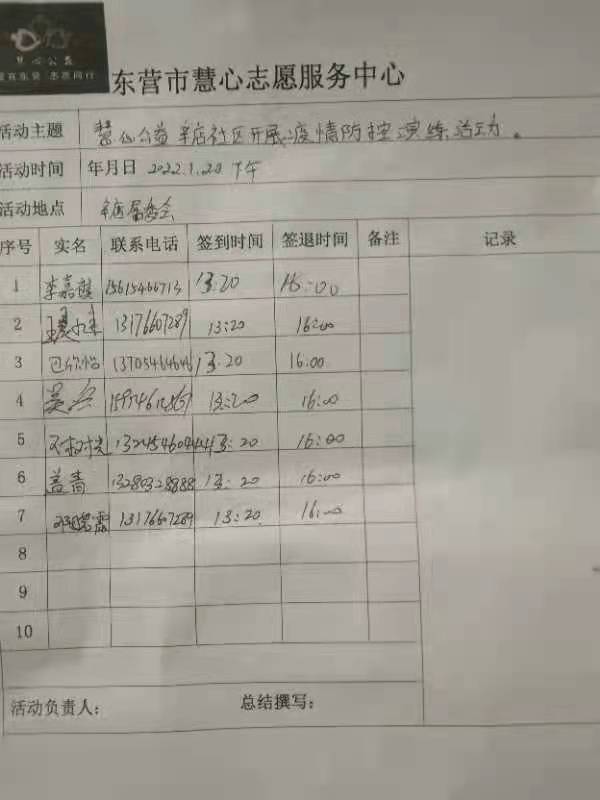 慧心公益
东营市慧心志愿服务中心
活动主题 慧心公益辛店社区开展疫情防控演练活动。
活动时间 年月日 2022.1.20 下午
活动地点 辛店居委会
序号 实名 联系电话 签到时间 签退时间 备注 记录
1 李嘉 15615466713 13:20 16:00
2 13176607289 13:20 16:00
3 巴欣怡 13705464646 13:20 16:00
4 13:20 16:00
5 13:20 16:00
6 盖青 13280328888 13:20 16:00
7 13176607289 13:20 16:00
8
9
10
活动负责人: 总结撰写: